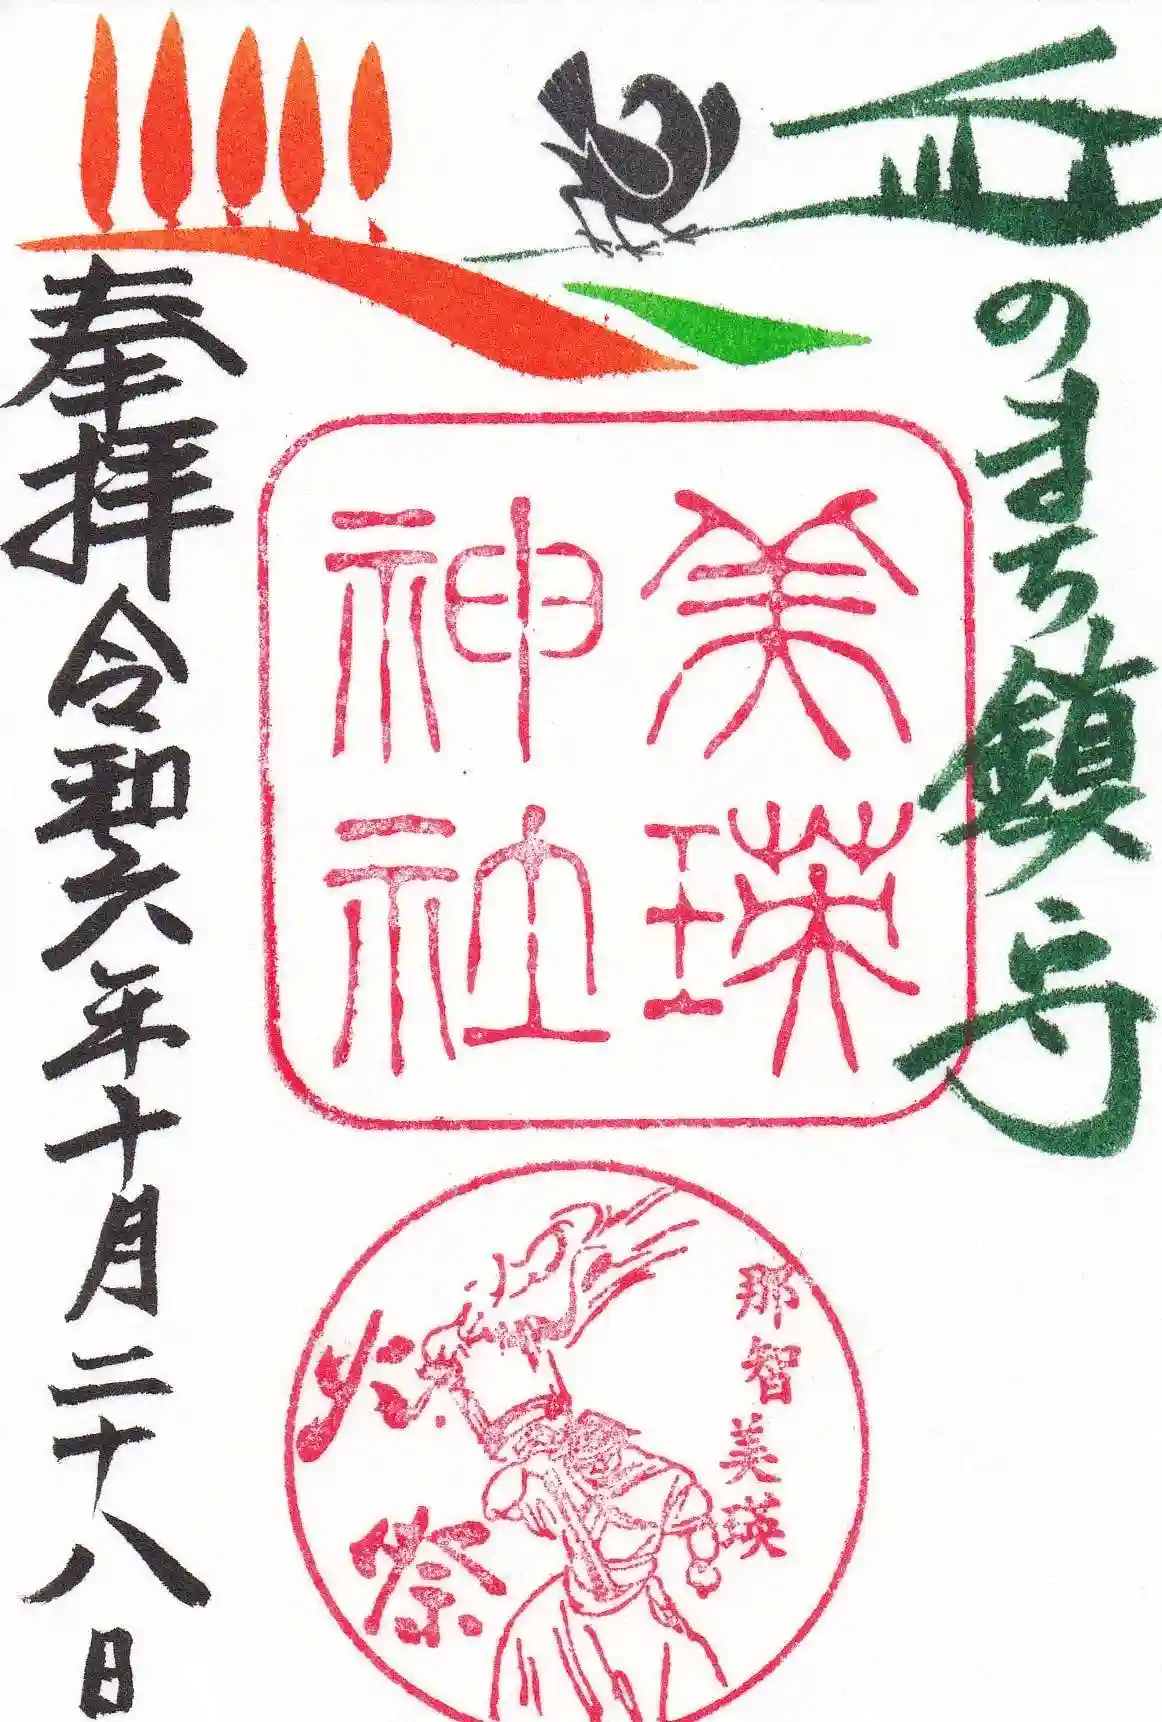 のまち鎮守
美瑛
神社
那智美瑛
火祭
奉拝 令和六年十月二十八日